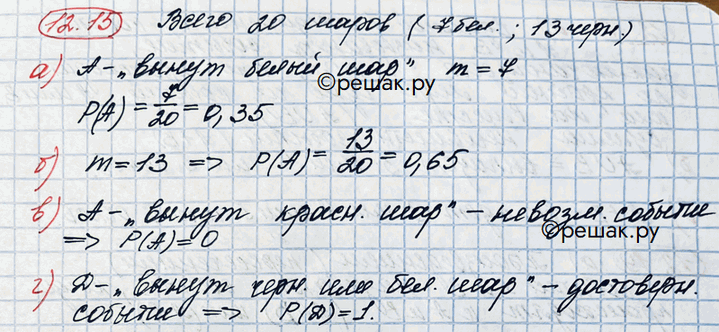 12.15 Всего 20 шаров (7 бел.; 13 черн.)
а) А - „вынут белый шар" m = 7
©решак.ру
P(A) = 7/20 = 0,35
б) m = 13 => P(A) = 13/20 = 0,65
в) А - „вынут красн. шар" - невозм. событие
=> P(A) = 0
©решак.ру
г) Д - „вынут черн. или бел. шар" - достоверн.
событие => P(Д) = 1.